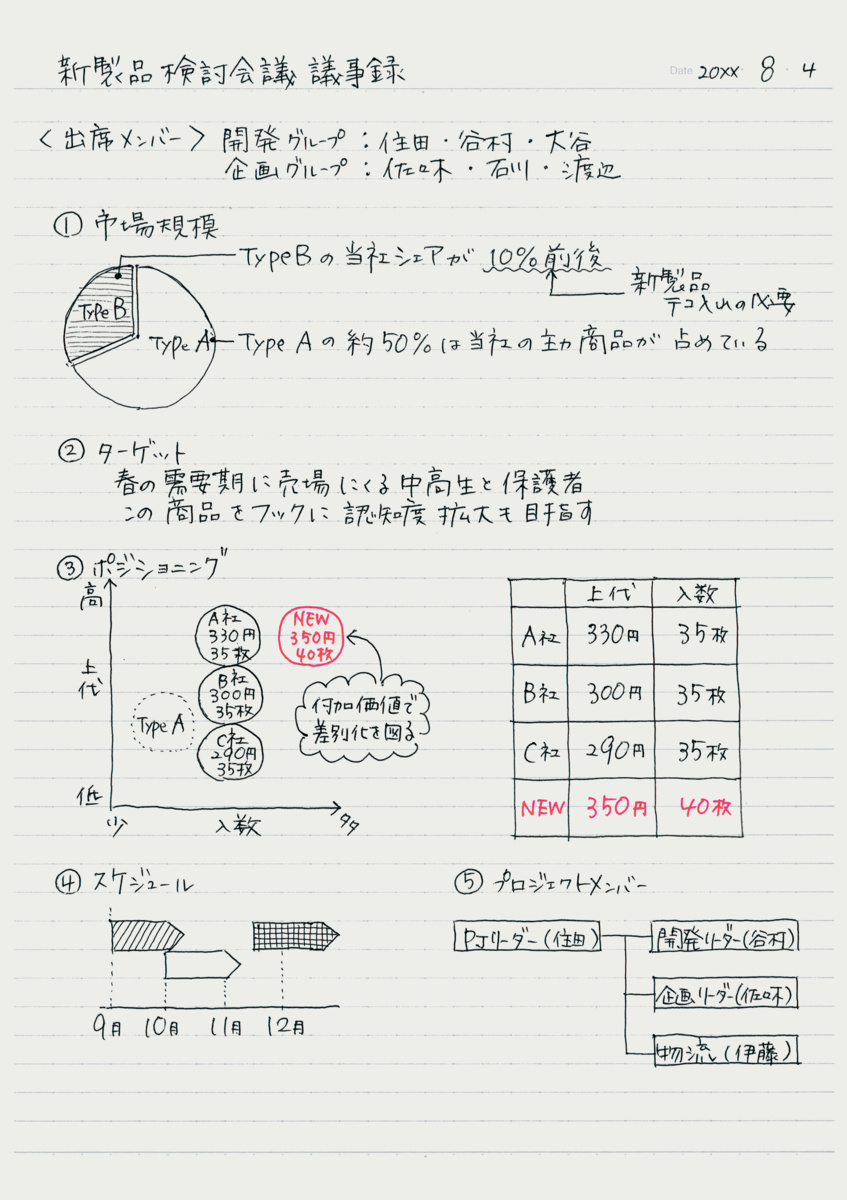 新製品検討会議 議事録
Date 20XX・8・4
〈出席メンバー〉開発グループ：住田・谷村・大谷
企画グループ：佐々木・石川・渡辺
① 市場規模
Type Bの当社シェアが10%前後
新製品
テコ入れの必要
Type B
Type A
Type Aの約50%は当社の主力商品が占めている
② ターゲット
春の需要期に売場にくる中高生と保護者
この商品をフックに認知度拡大も目指す
③ ポジショニング
高
上代
低
少
入数
多
A社
330円
35枚
B社
300円
35枚
C社
290円
35枚
Type A
NEW
350円
40枚
付加価値で
差別化を図る
上代 入数
A社 330円 35枚
B社 300円 35枚
C社 290円 35枚
NEW 350円 40枚
④ スケジュール
9月 10月 11月 12月
⑤ プロジェクトメンバー
PJリーダー(住田)
開発リーダー(谷村)
企画リーダー(佐々木)
物流(伊藤)